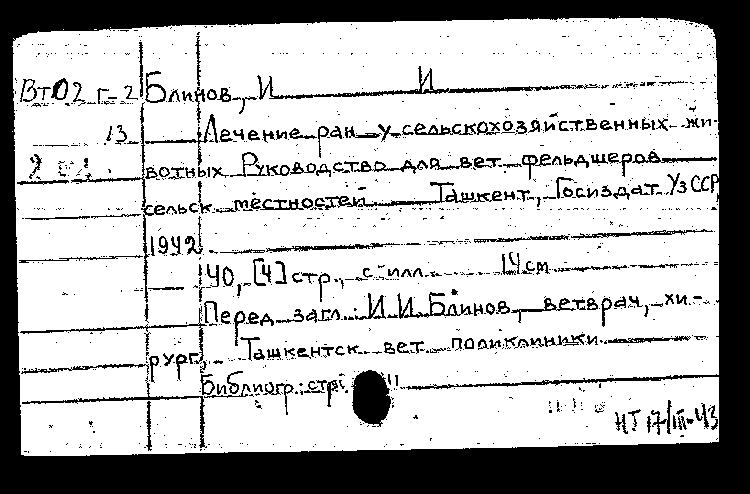 ВтО2 г-2 Блинов, И И
13 Лечение ран у сельскохозяйственных жи-
вотных Руководство для вет. фельдшеров
сельск. местностей Ташкент, Госиздат УзССР,
1942.
40, [4] стр., с илл. 14 см
Перед загл.: И. И. Блинов, ветврач, хи-
рург, Ташкентск. вет. поликлиники
Библиогр.: стр.
НТ 17/III-43